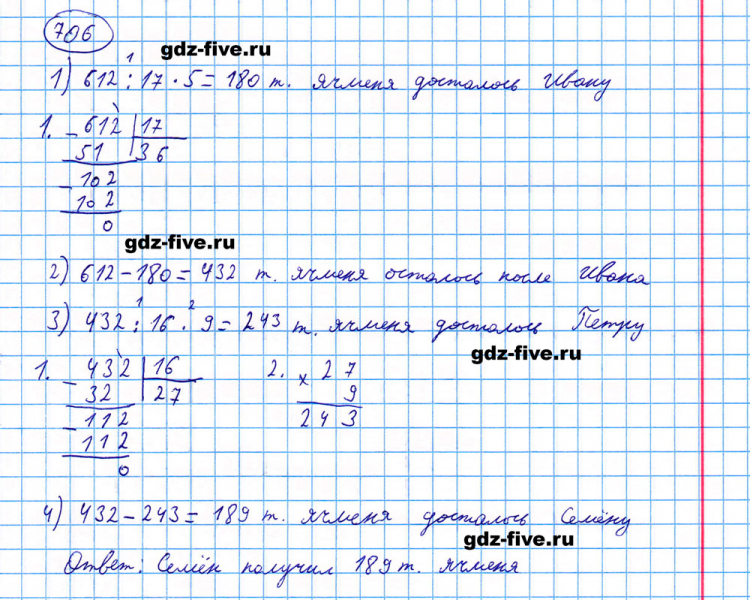 706
gdz-five.ru
1) 612 : 17 · 5 = 180 т. ячменя досталось Ивану
1
1. - 612 | 17
51 36
- 102
102
0
gdz-five.ru
2) 612 - 180 = 432 т. ячменя осталось после Ивана
1 2
3) 432 : 16 · 9 = 243 т. ячменя досталось Петру
gdz-five.ru
1. - 432 | 16 2. × 27
32 27 9
- 112 243
112
0
4) 432 - 243 = 189 т. ячменя досталось Семёну
gdz-five.ru
Ответ: Семён получил 189 т. ячменя